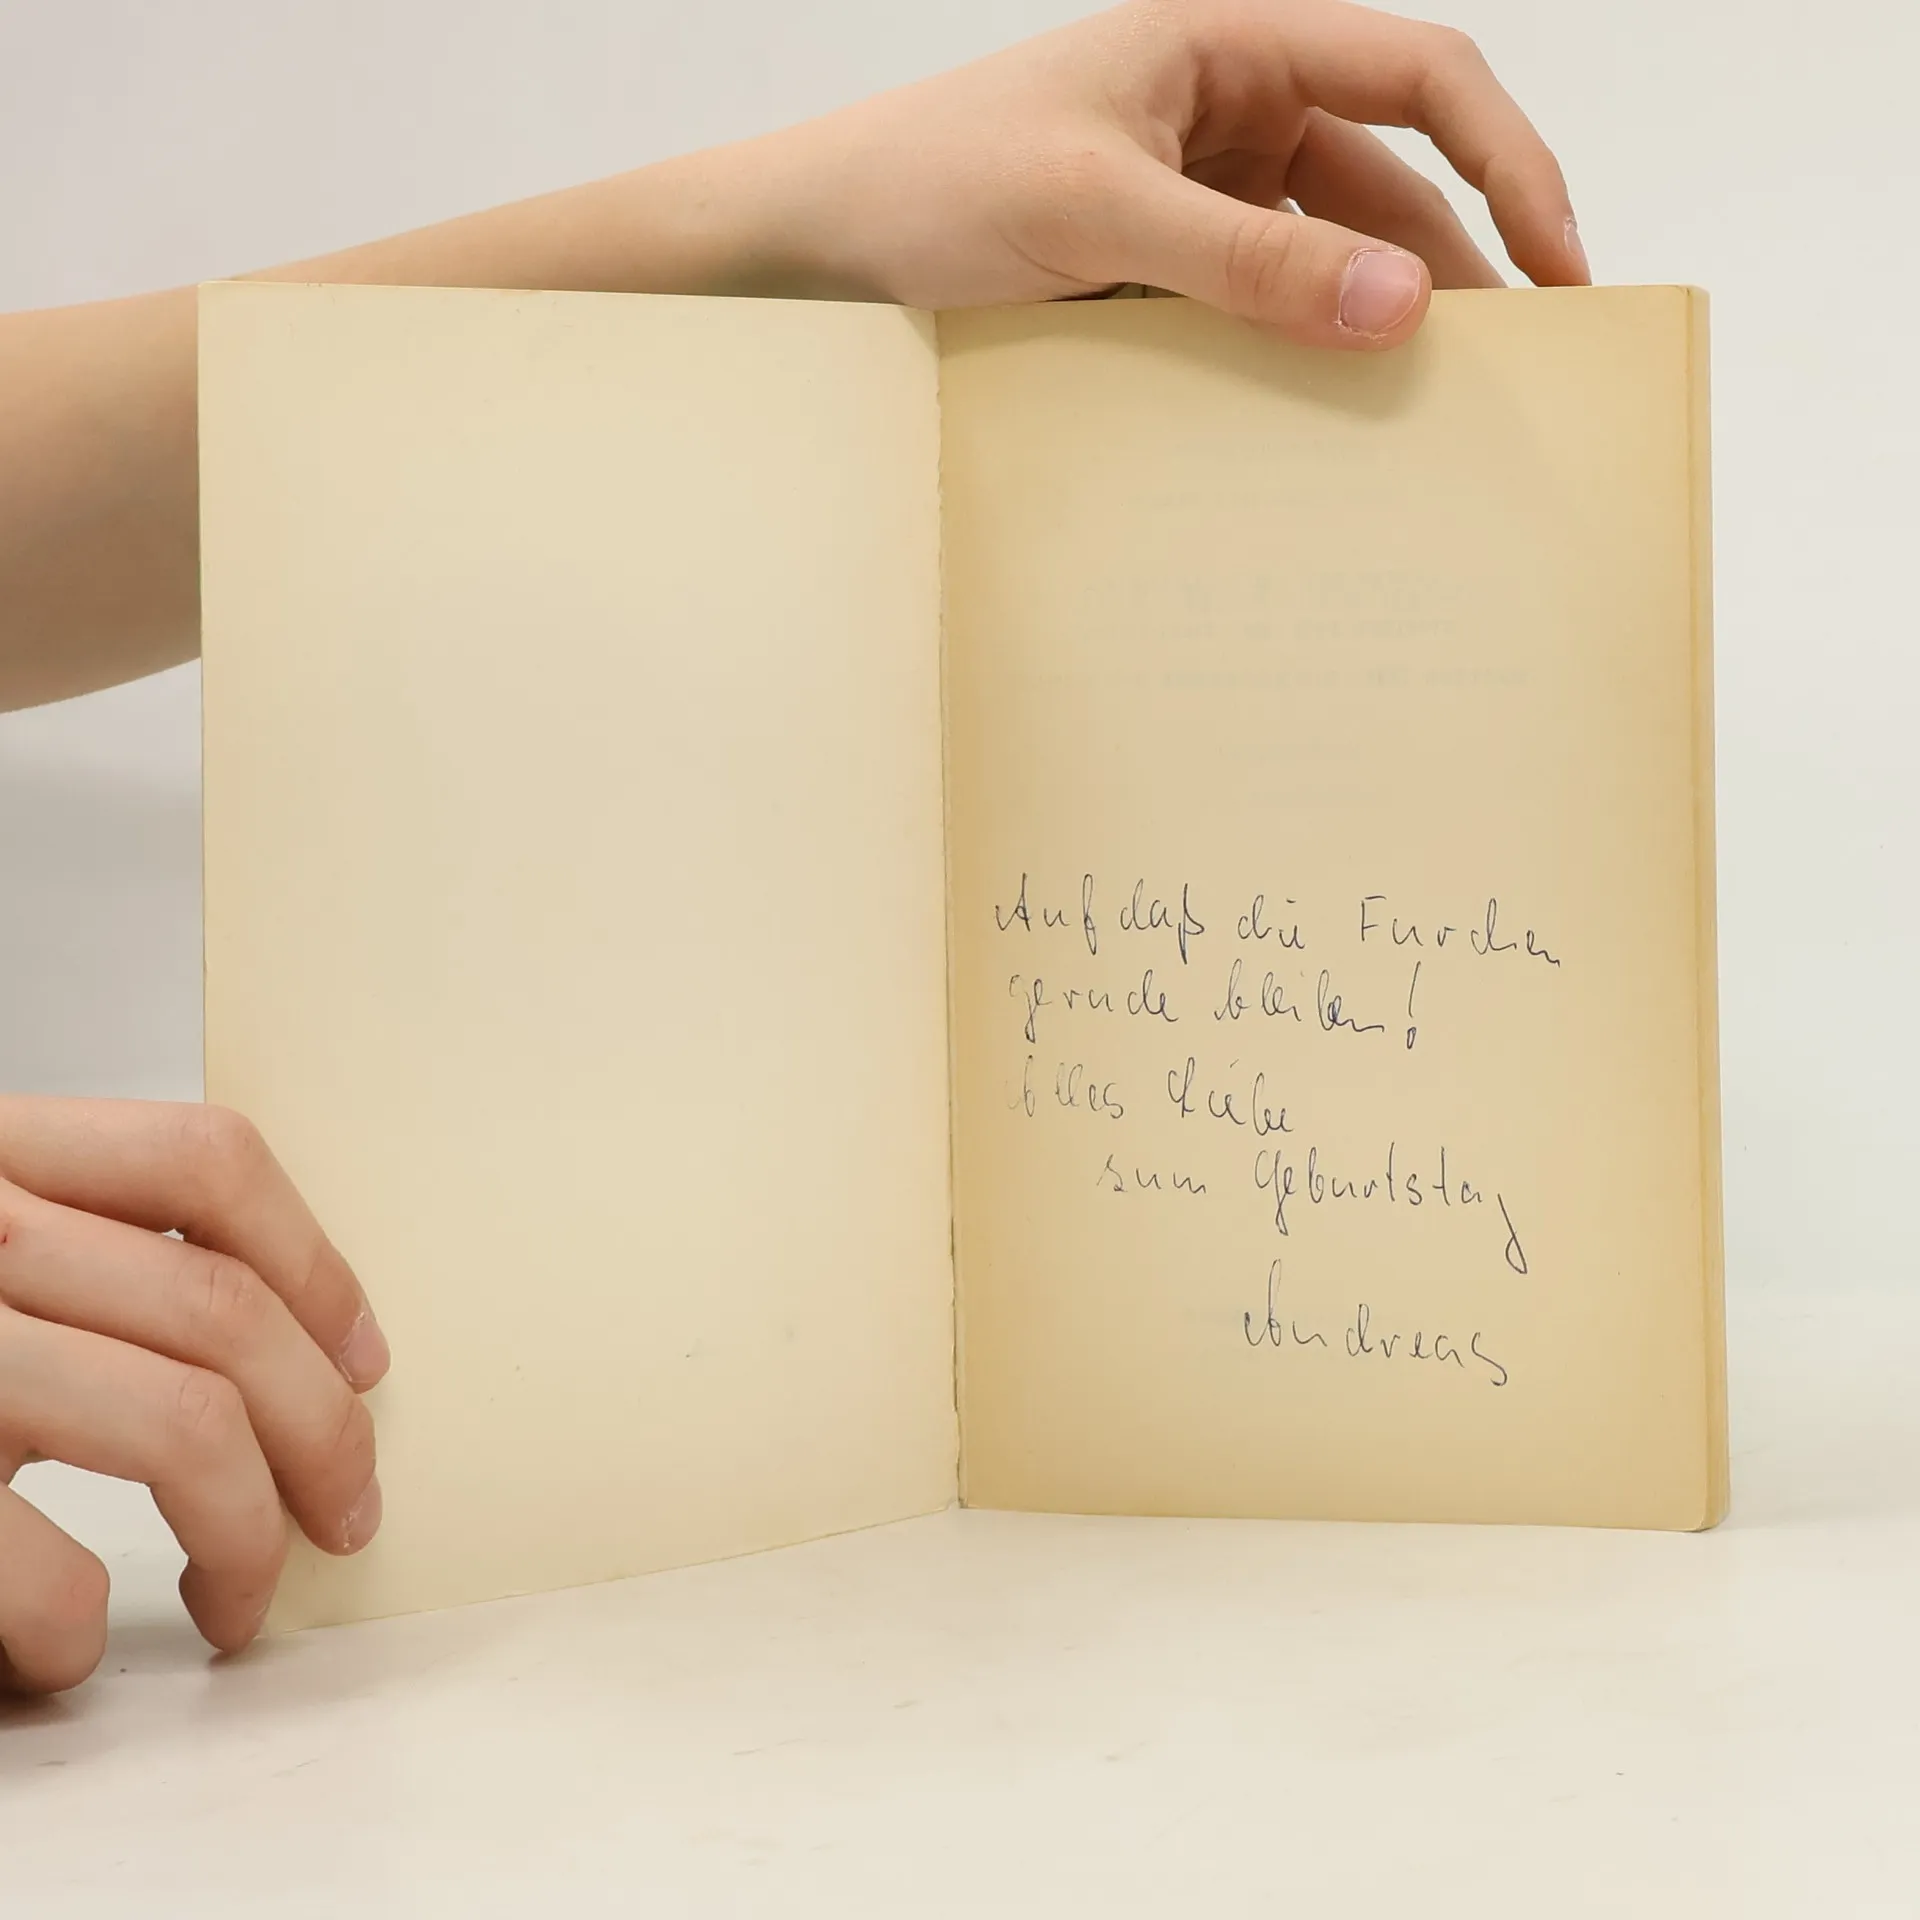 Auf daß die Furchen
gerade bleiben!
Alles Liebe
zum Geburtstag
Andreas